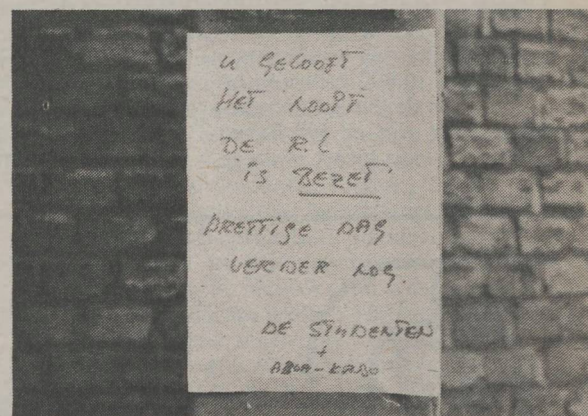 U GELOOFT
HET NOOIT
DE R.C
is BEZET
PRETTIGE DAG
VERDER NOG.
DE STUDENTEN
+
ABVA-KABO